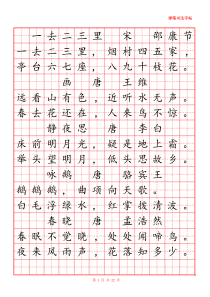 硬笔书法字帖
一去二三里 宋 邵康节
一去二三里，烟村四五家，
亭台六七座，八九十枝花。
画 唐 王维
远看山有色，近听水无声。
春去花还在，人来鸟不惊。
静夜思 唐 李白
床前明月光，疑是地上霜。
举头望明月，低头思故乡。
咏鹅 唐 骆宾王
鹅鹅鹅，曲项向天歌。
白毛浮绿水，红掌拨清波。
春晓 唐 孟浩然
春眠不觉晓，处处闻啼鸟。
夜来风雨声，花落知多少。